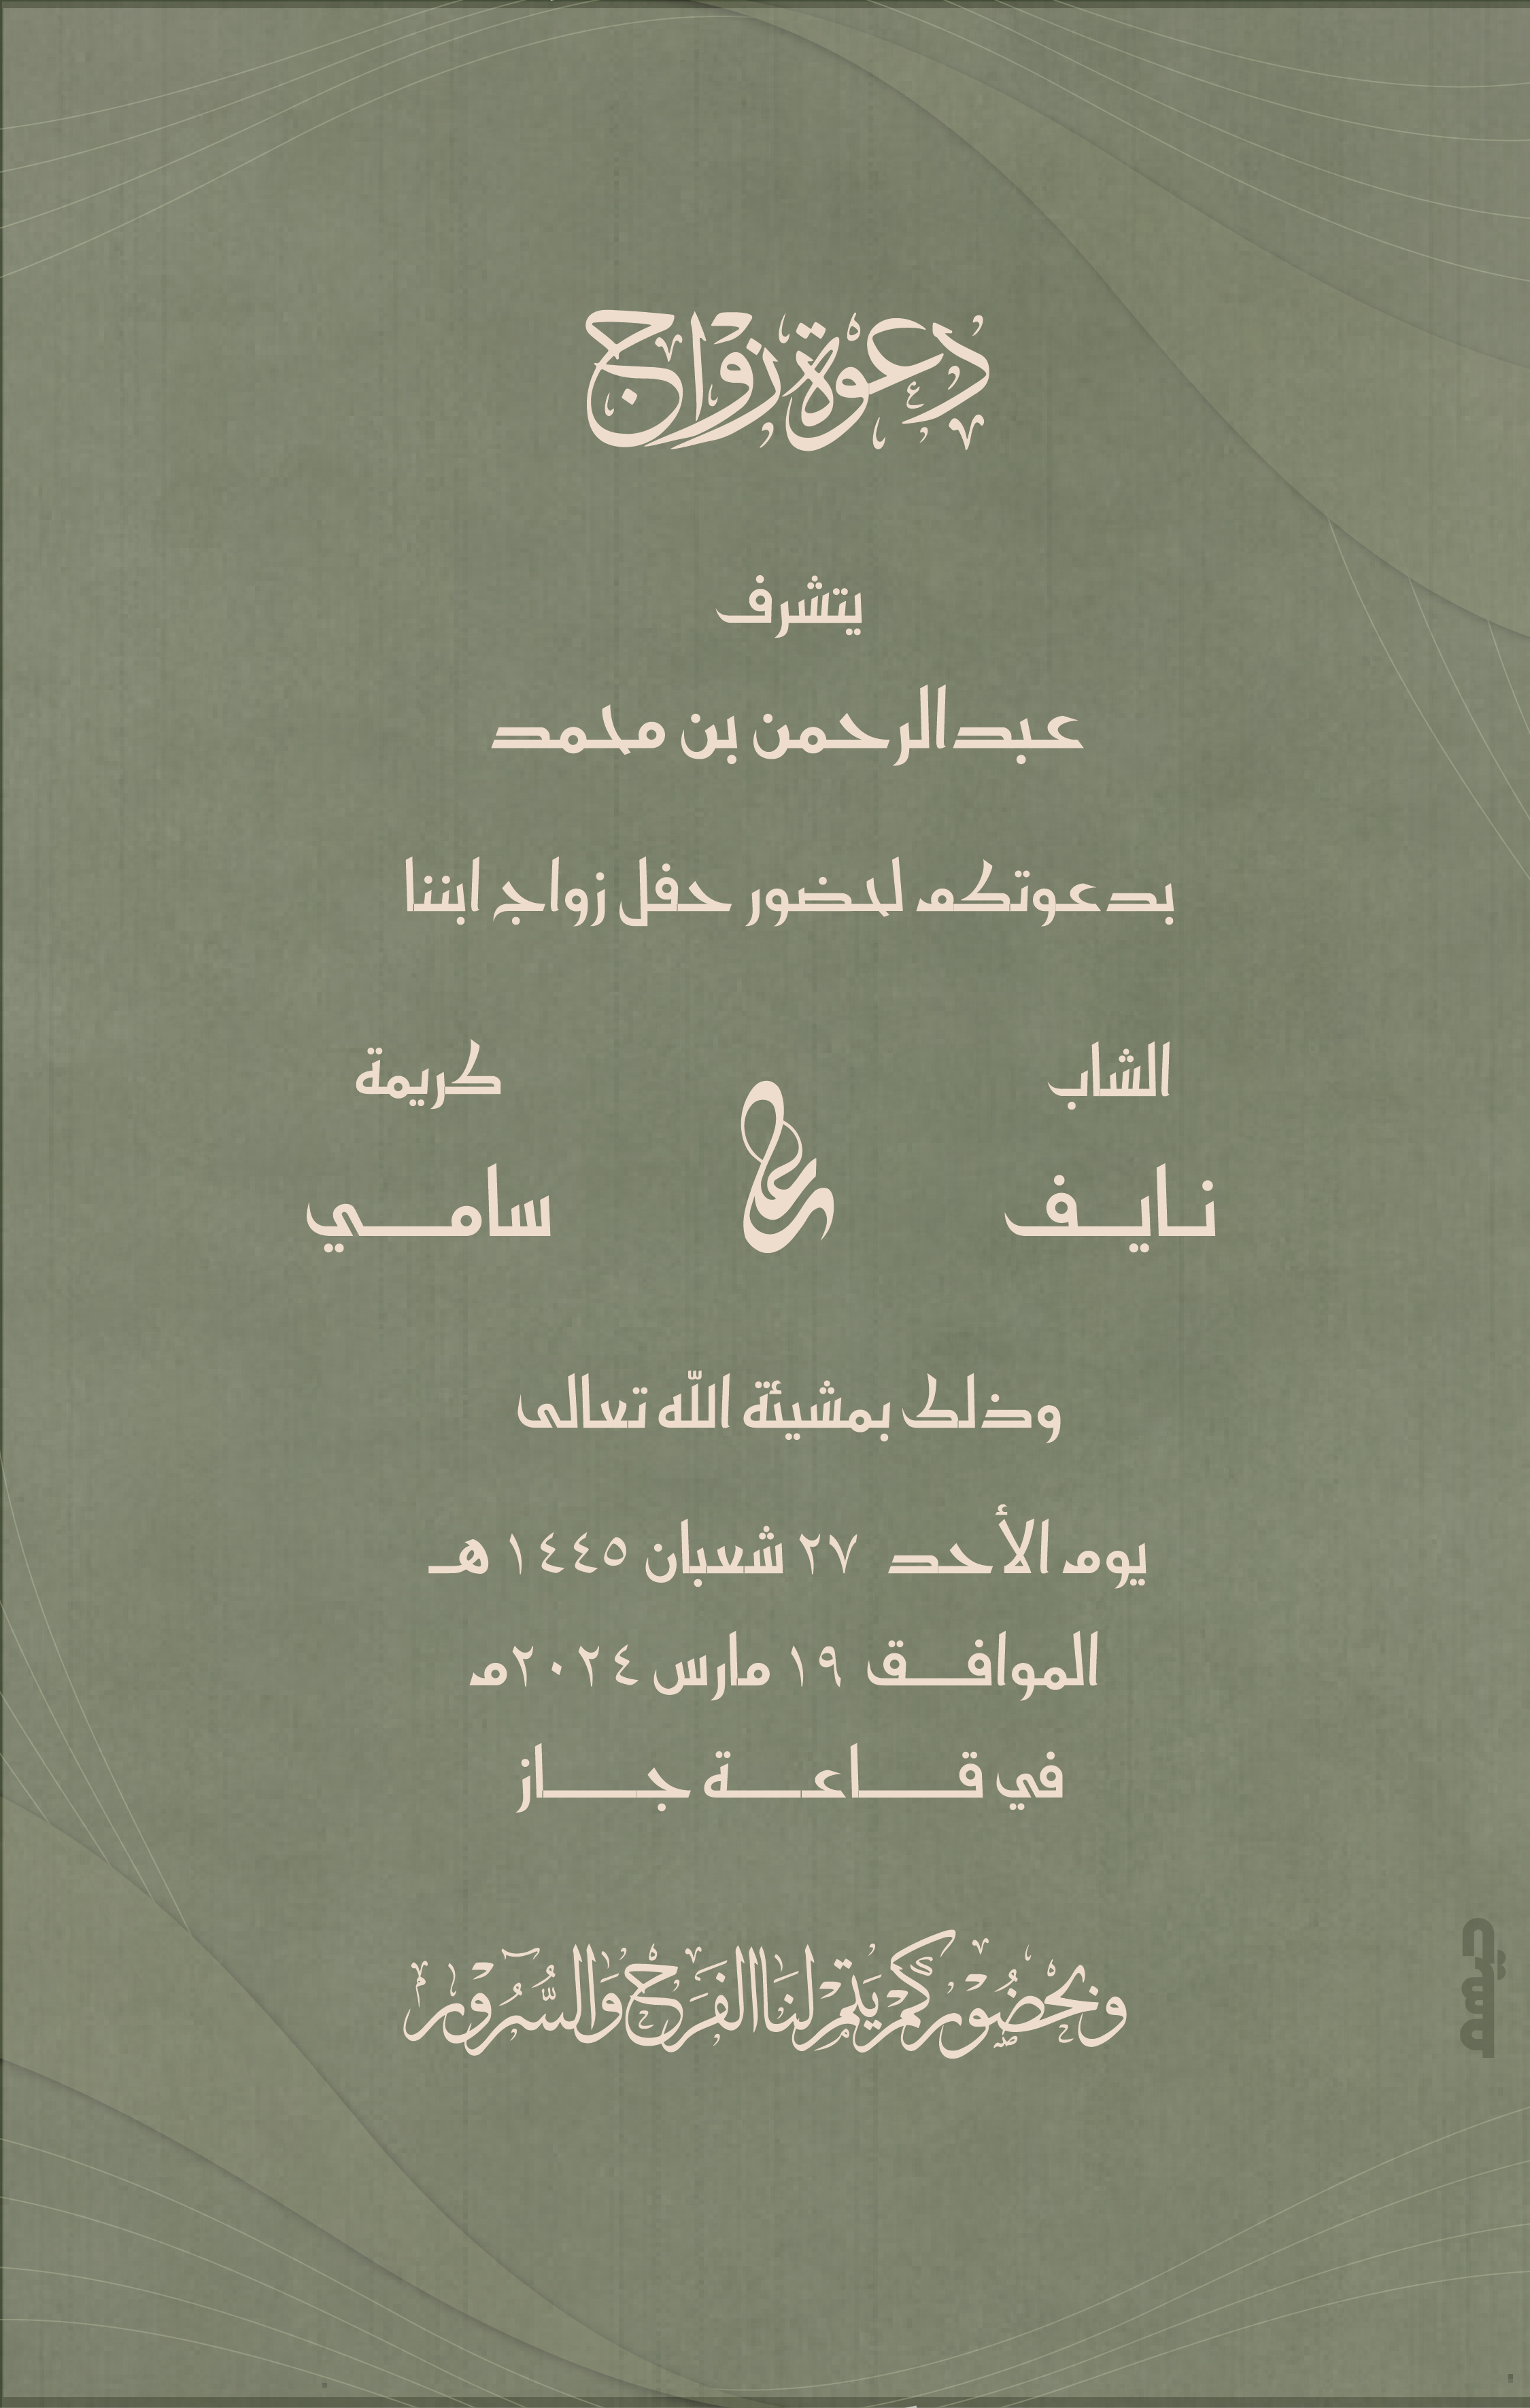 دعوة زواج
يتشرف
عبدالرحمن بن محمد
بدعوتكم لحضور حفل زواج ابننا
الشاب
نايـف
على
كريمة
سامـي
وذلك بمشيئة اللّه تعالى
يوم الأحد ٢٧ شعبان ١٤٤٥ هـ
الموافـق ١٩ مارس ٢٠٢٤م
في قـاعـة جـاز
وَبحُضُوْركُمْ يَتِمْ لنَا الفَرَحْ وَالسُّرُوْر